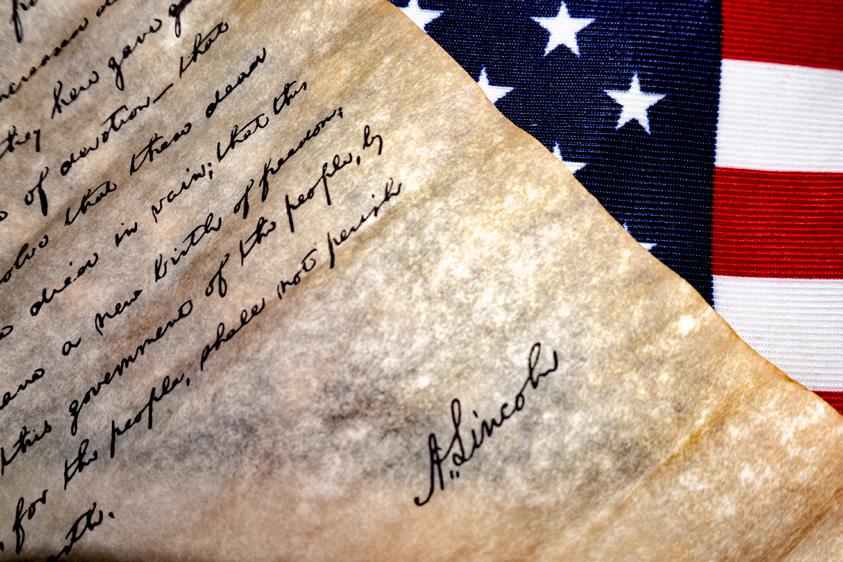 they here gave
of devotion— that
that these dead
died in vain; that this
a new birth of freedom;
this government of the people, by
for the people, shall not perish
A. Lincoln